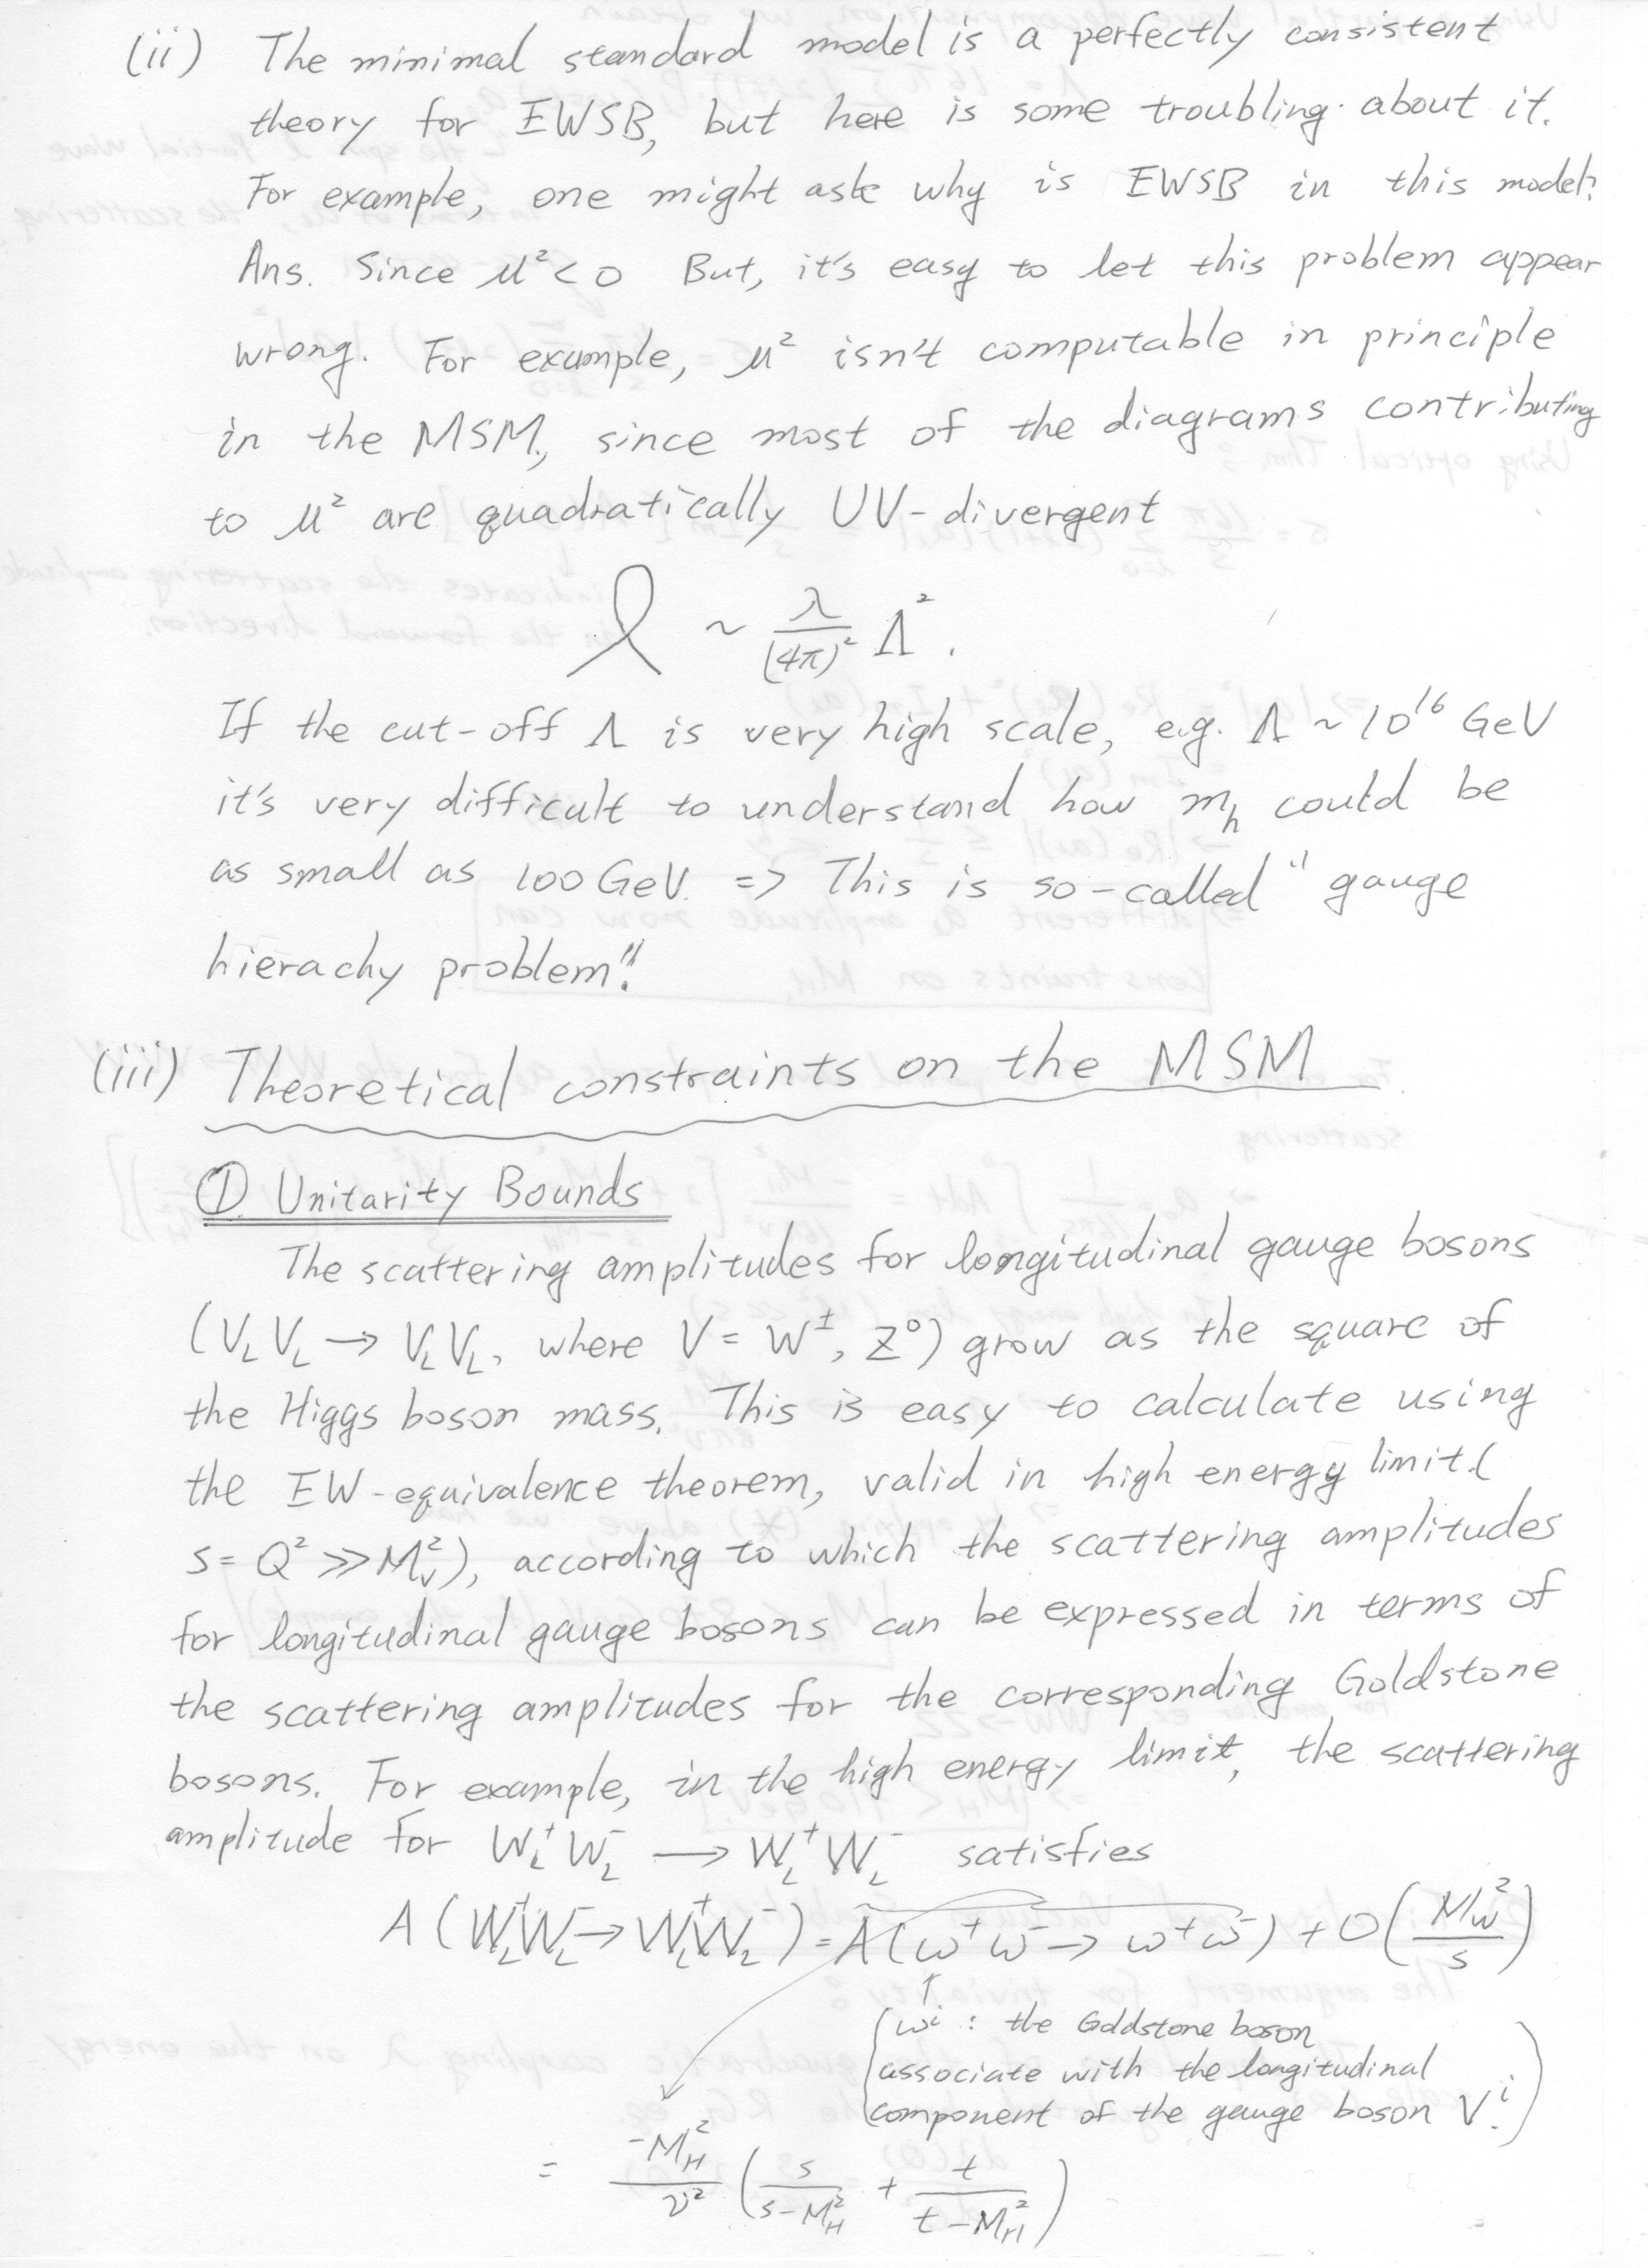 (ii) The minimal standard model is a perfectly consistent
theory for EWSB, but here is some troubling about it.
For example, one might ask why is EWSB in this model?
Ans. Since μ² < 0 But, it's easy to let this problem appear
wrong. For example, μ² isn't computable in principle
in the MSM, since most of the diagrams contributing
to μ² are quadratically UV-divergent
~ λ/(4π)² Λ².
If the cut-off Λ is very high scale, e.g. Λ ~ 10¹⁶ GeV
it's very difficult to understand how m_h could be
as small as 100 GeV. => This is so-called "gauge
hierachy problem".
(iii) Theoretical constraints on the MSM
① Unitarity Bounds
The scattering amplitudes for longitudinal gauge bosons
(V_L V_L → V_L V_L, where V = W^±, Z⁰) grow as the square of
the Higgs boson mass. This is easy to calculate using
the EW-equivalence theorem, valid in high energy limit (
s = Q² ≫ M_V²), according to which the scattering amplitudes
for longitudinal gauge bosons can be expressed in terms of
the scattering amplitudes for the corresponding Goldstone
bosons. For example, in the high energy limit, the scattering
amplitude for W_L⁺ W_L⁻ → W_L⁺ W_L⁻ satisfies
A(W_L⁺W_L⁻ → W_L⁺W_L⁻) = A(ω⁺ω⁻ → ω⁺ω⁻) + O(M_W²/s)
(ωⁱ : the Goldstone boson
associate with the longitudinal
component of the gauge boson Vⁱ.)
= -M_H²/v² (s/(s-M_H²) + t/(t-M_H²))